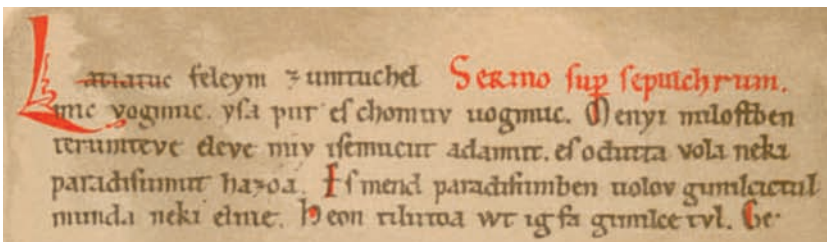 Latiatuc feleym zumtuchel Sermo sup sepulchrum.
mic vogmuc. yſa pur eſ chomuv uogmuc. Menyi miloſtben
terumteve eleve miv iſemucut adamut. eſ odutta vola neki
paradiſumut hazoa. Eſ mend paradiſumben uolov gimilcictul
munda neki elnie. Heon tilutoa wt ig fa gimilce tvl. Ge